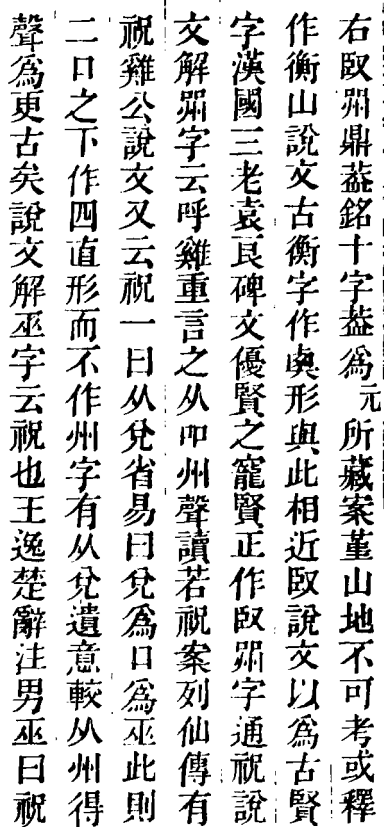 右臤𠱧鼎葢銘十字葢爲元所藏案堇山地不可考或釋
作衡山說文古衡字作𡘙形與此相近臤說文以爲古賢
字漢國三老袁良碑文優賢之寵賢正作臤𠱧字通祝說
文解𠱧字云呼雞重言之从吅州聲讀若祝案列仙傳有
祝雞公說文又云祝一曰从兌省易曰兌爲口爲巫此則
二口之下作四直形而不作州字有从兌遺意較从州得
聲爲更古矣說文解巫字云祝也王逸楚辭注男巫曰祝